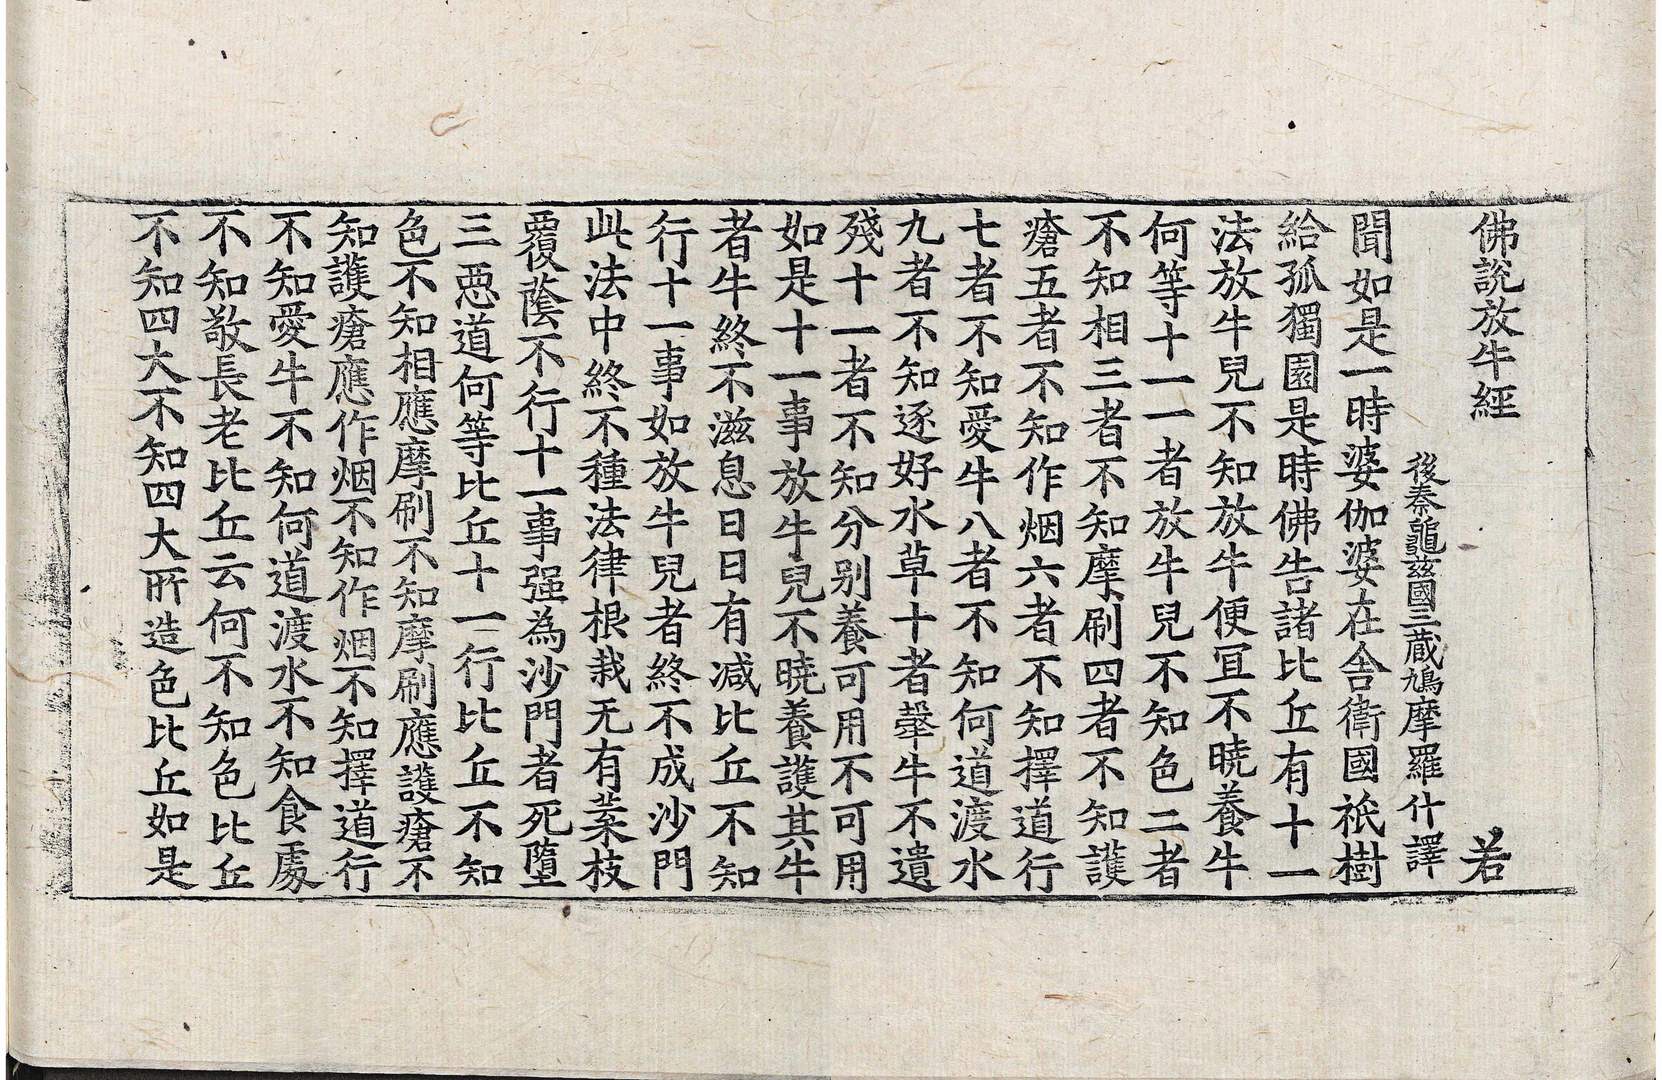 佛說放牛經 若
後秦龜茲國三蔵鳩摩羅什譯
聞如是一時婆伽婆在舍衛國祇樹
給孤獨園是時佛告諸比丘有十一
法放牛兒不知放牛便冝不曉養牛
何等十一一者放牛兒不知色二者
不知相三者不知摩刷四者不知護
瘡五者不知作烟六者不知擇道行
七者不知愛牛八者不知何道渡水
九者不知逐好水草十者𤚲牛不遺
殘十一者不知分别養可用不可用
如是十一事放牛兒不曉養護其牛
者牛終不滋息日日有减比丘不知
行十一事如放牛兒者終不成沙門
此法中終不種法律根栽无有葉枝
覆蔭不行十一事强為沙門者死墮
三惡道何等比丘十一行比丘不知
色不知相應摩刷不知摩刷應護瘡不
知護瘡應作烟不知作烟不知擇道行
不知愛牛不知何道渡水不知食處
不知敬長老比丘云何不知色比丘
不知四大不知四大所造色比丘如是